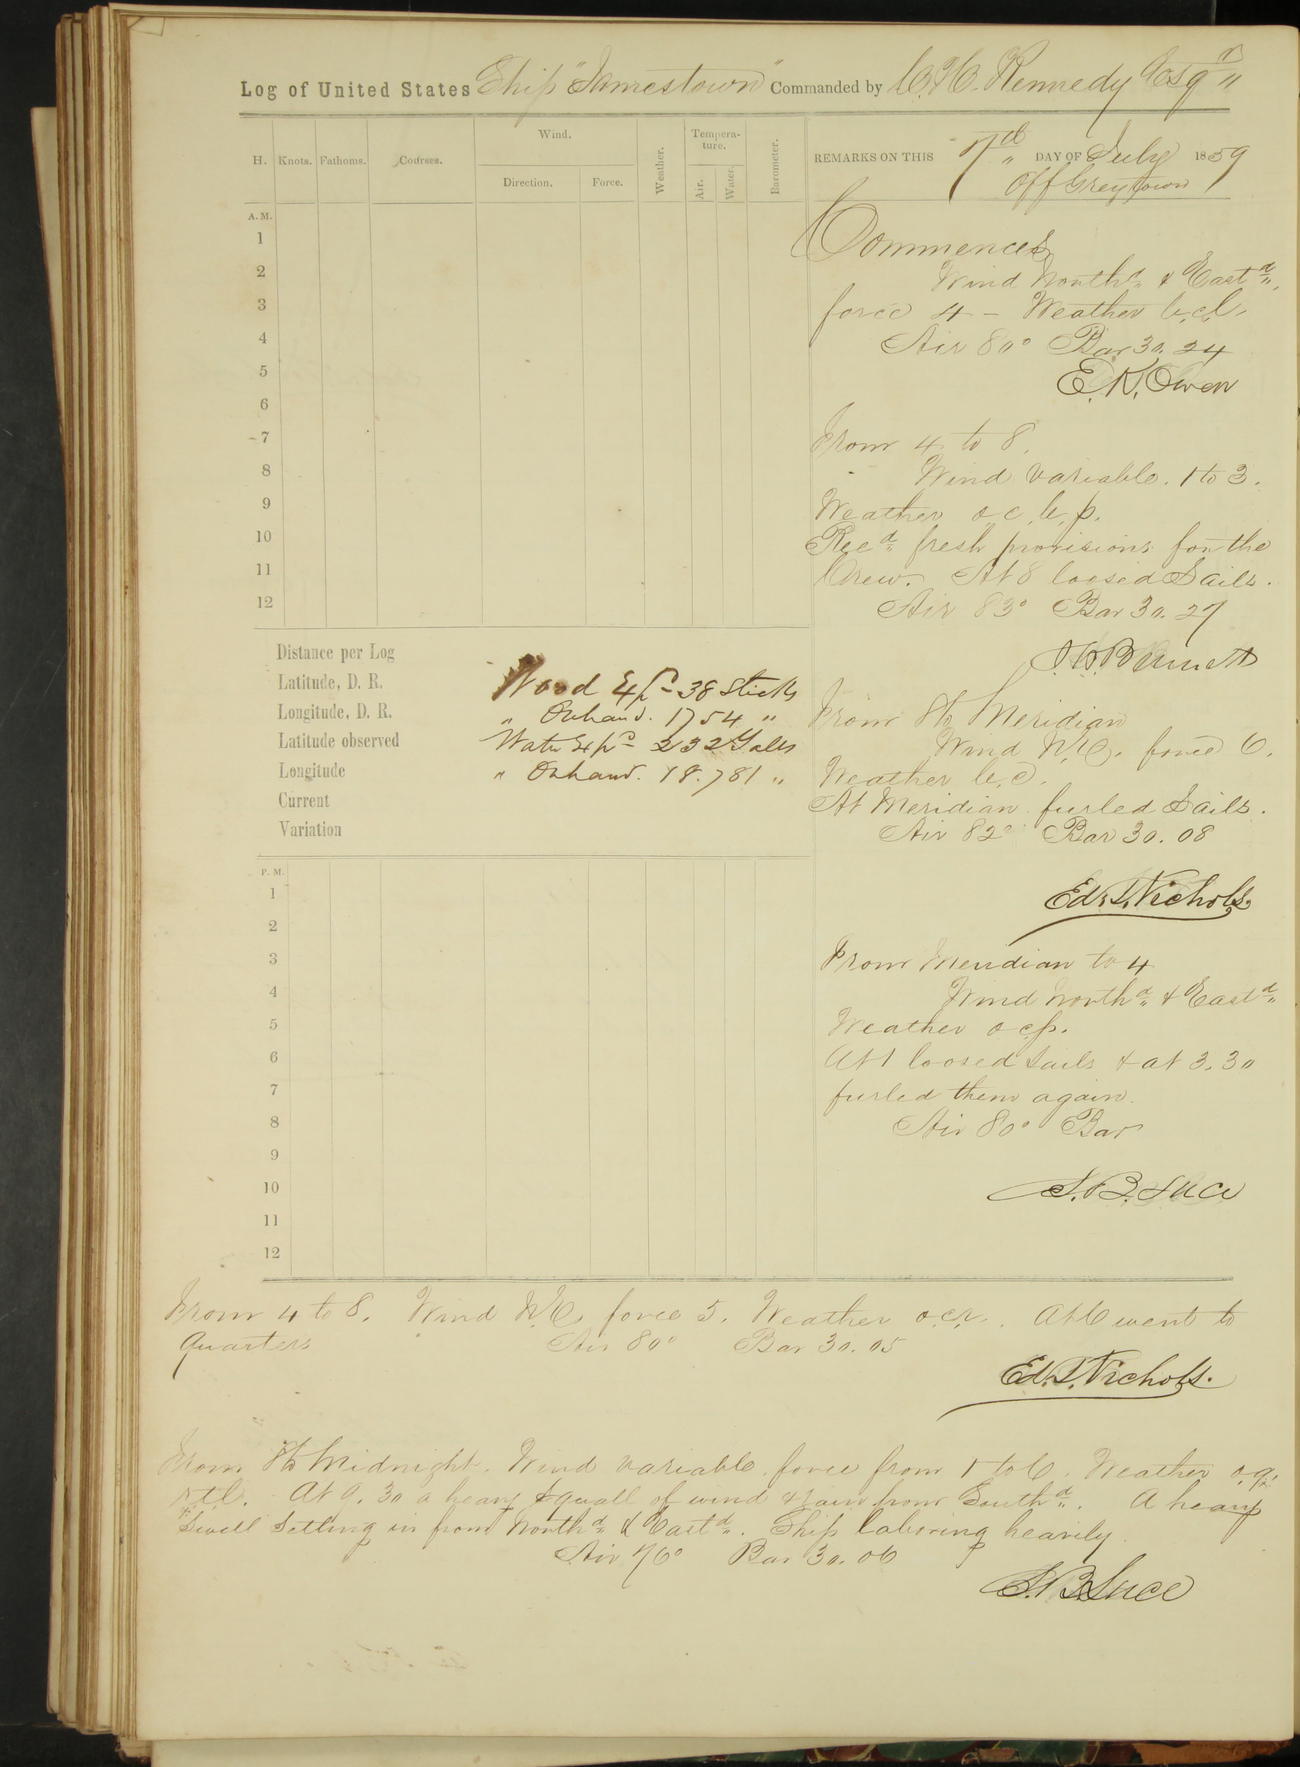 Log of United States Ship "Jamestown" Commanded by C. H. Kennedy Esqr
H. Knots. Fathoms. Courses. Wind. Direction. Force. Weather. Tempera-ture. Air. Water. Barometer.
REMARKS ON THIS 7th DAY OF July 1859
Off Greytown
A.M.
1
2
3
4
5
6
7
8
9
10
11
12
Commences
Wind Northd & Eastd,
force 4 - Weather b.c.l.
Air 80° Bar 30.24
E. K. Owen
From 4 to 8.
Wind variable. 1 to 3.
Weather o c. b. p.
Recd fresh provisions for the
Crew. At 8 loosed Sails.
Air 83° Bar 30.27
From 8 to Meridian
Wind N.E. force 6.
Weather b.c.
At Meridian furled Sails.
Air 82° Bar 30.08
Ed. T. Nichols.
Distance per Log
Latitude, D. R.
Longitude, D. R.
Latitude observed
Longitude
Current
Variation
Wood Expd 38 Sticks
" Onhand. 1754 "
Water Expd 232 Galls
" Onhand. 18.781 "
P. M.
1
2
3
4
5
6
7
8
9
10
11
12
From Meridian to 4
Wind Northd & Eastd
Weather o c p.
At 1 loosed Sails & at 3.30
furled them again.
Air 80° Bar
S. B. Luce
From 4 to 8. Wind N.E. force 5. Weather o.c.r. At 6 went to
Quarters Air 80° Bar 30.05
Ed. T. Nichols.
From 8 to Midnight. Wind variable force from 1 to 6. Weather o.q.
r.t.l. At 9.30 a heavy Squall of wind & rain from Southd. A heavy
Swell Setting in from Northd & Eastd. Ship laboring heavily.
Air 76° Bar 30.06
S. B. Luce